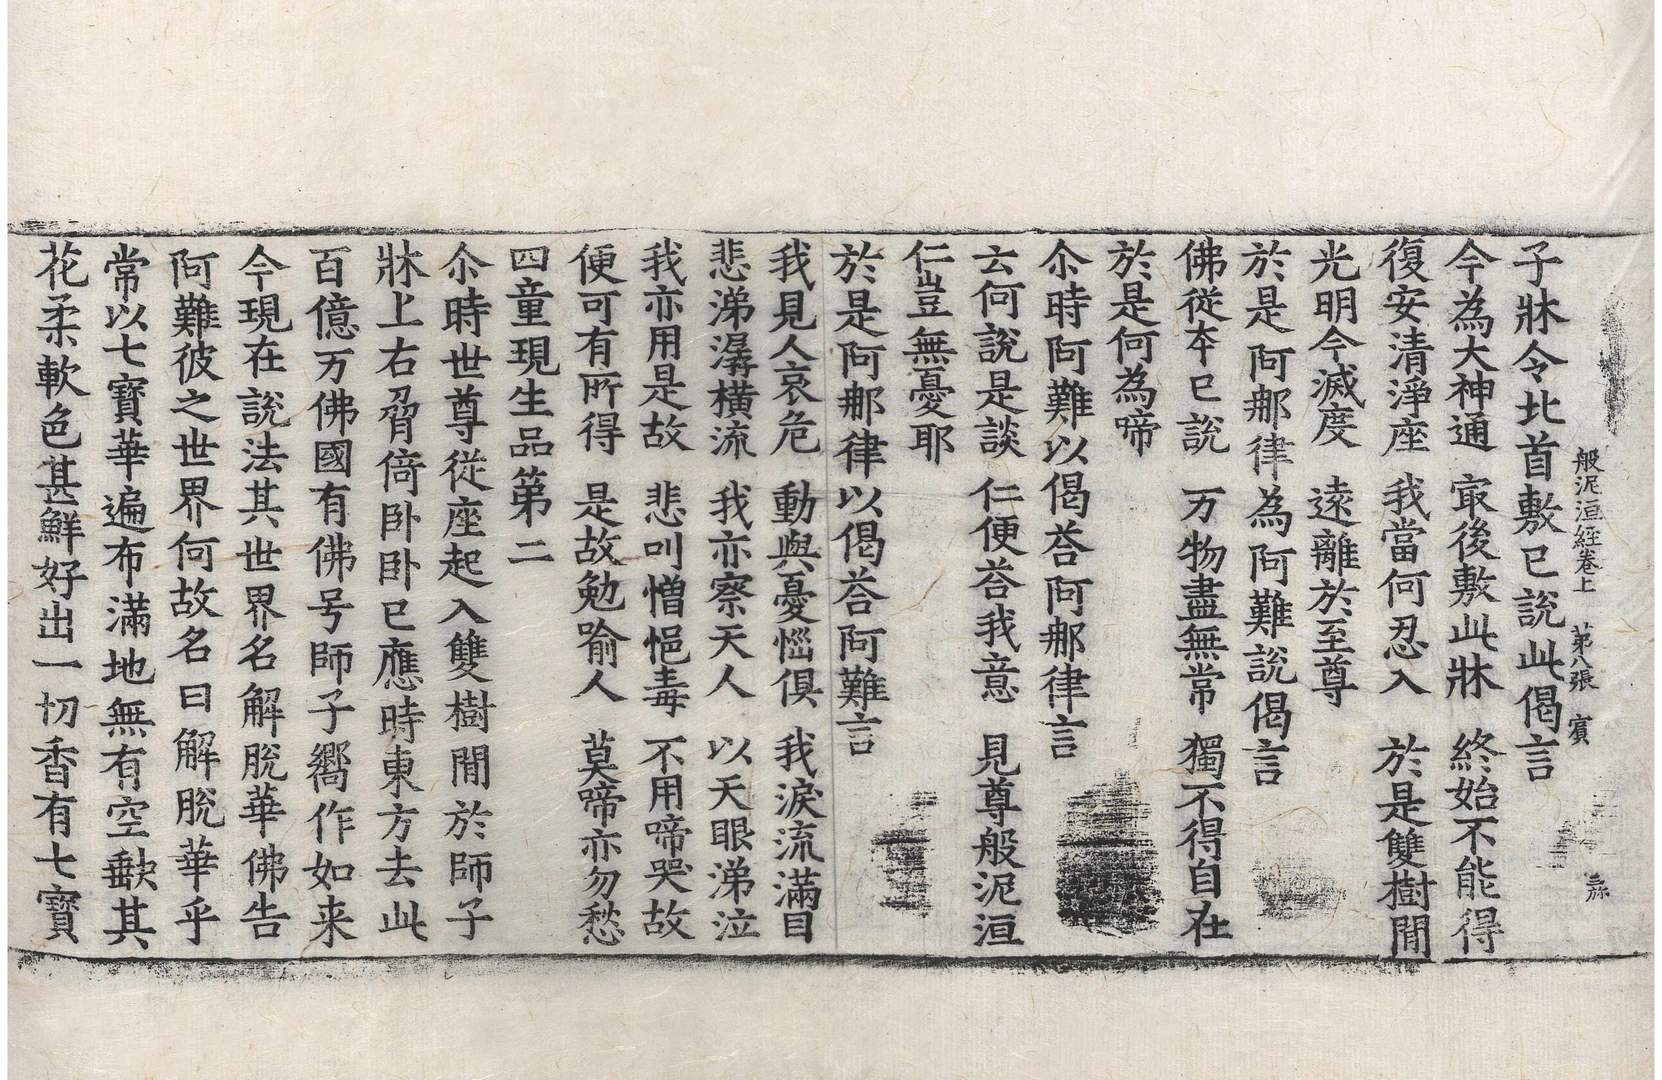 般泥洹經卷上　第八張　賓
子牀令北首敷已說此偈言
今為大神通　冣後敷此牀　終始不能得
復安清淨座　我當何忍入　於是雙樹間
光明今滅度　遠離於至尊
於是阿那律為阿難說偈言
佛從夲已說　万物盡無常　獨不得自在
於是何為啼
尒時阿難以偈荅阿那律言
云何說是談　仁便荅我意　見尊般泥洹
仁豈無憂耶
於是阿那律以偈荅阿難言
我見人哀危　動與憂惱俱　我淚流滿目
悲涕潺橫流　我亦察天人　以天眼涕泣
我亦用是故　悲叫憎悒毒　不用啼哭故
便可有所得　是故勉喻人　莫啼亦勿愁
四童現生品第二
尒時世尊從座起入雙樹間於師子
牀上右脅倚卧卧已應時東方去此
百億万佛國有佛号師子嚮作如来
今現在說法其世界名解脫華佛告
阿難彼之世界何故名曰解脫華乎
常以七寶華遍布滿地無有空缺其
花柔軟色甚鮮好出一切香有七寶